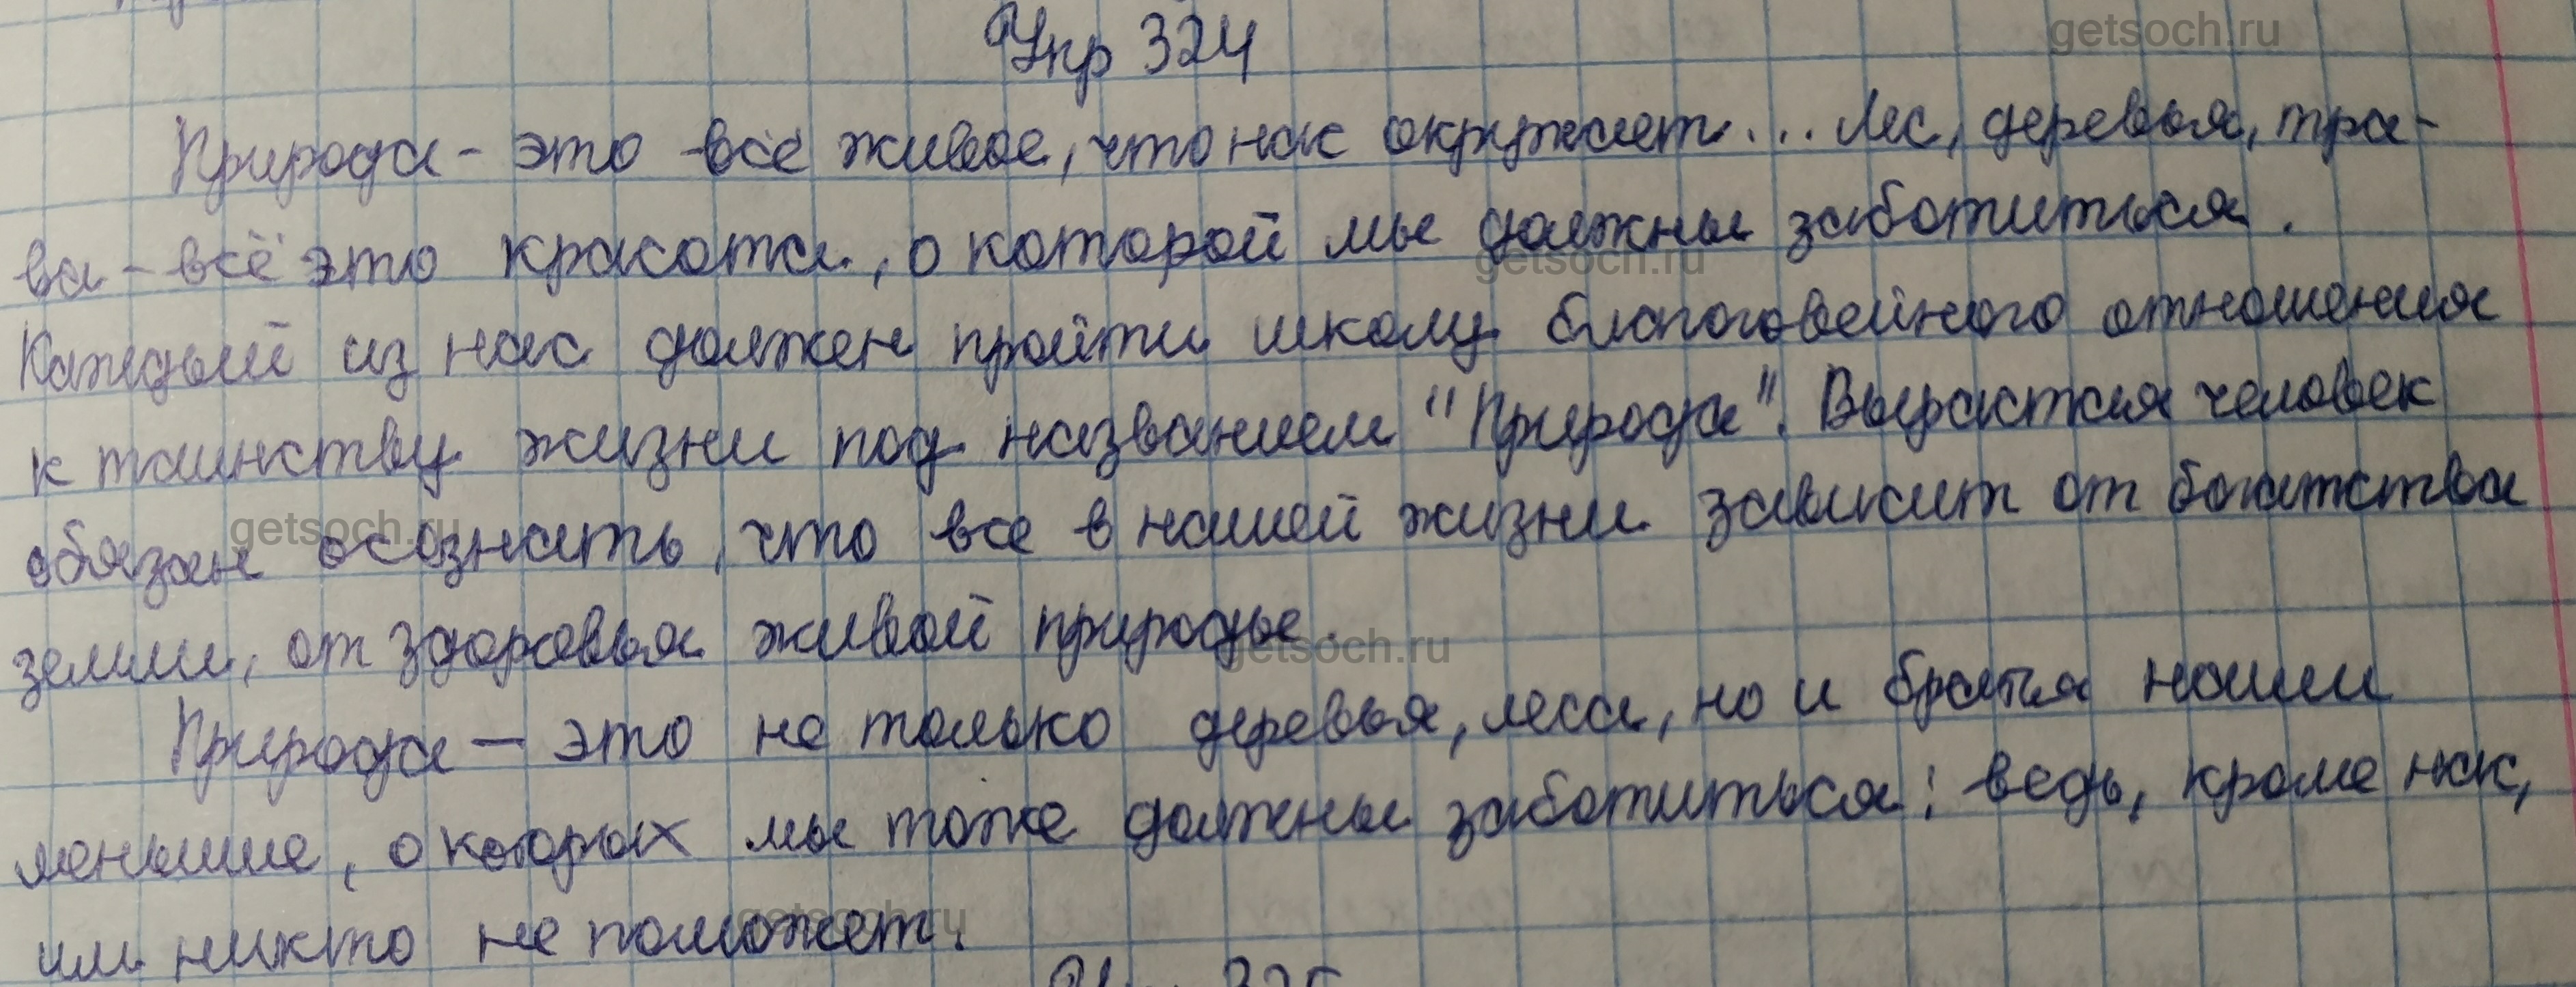 Упр 324
getsoch.ru
Природа - это всё живое, что нас окружает... Лес, деревья, тра-
ва - всё это красота, о которой мы должны заботиться.
getsoch.ru
Каждый из нас должен пройти школу благоговейного отношения
к таинству жизни под названием "Природа". Вырастая человек
getsoch.ru
обязан осознать, что все в нашей жизни зависит от богатства
земли, от здоровья живой природы.
getsoch.ru
Природа — это не только деревья, леса, но и братья наши
меньшие, о которых мы тоже должны заботиться; ведь, кроме нас,
им никто не поможет.
getsoch.ru